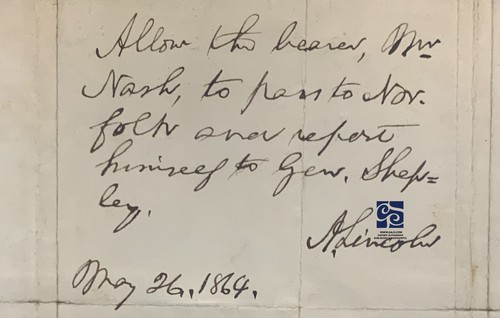 Allow the bearer, Mr
Nash, to pass to Nor-
folk and report
himself to Gen. Shep=
ley.
A. Lincoln
May 26, 1864.